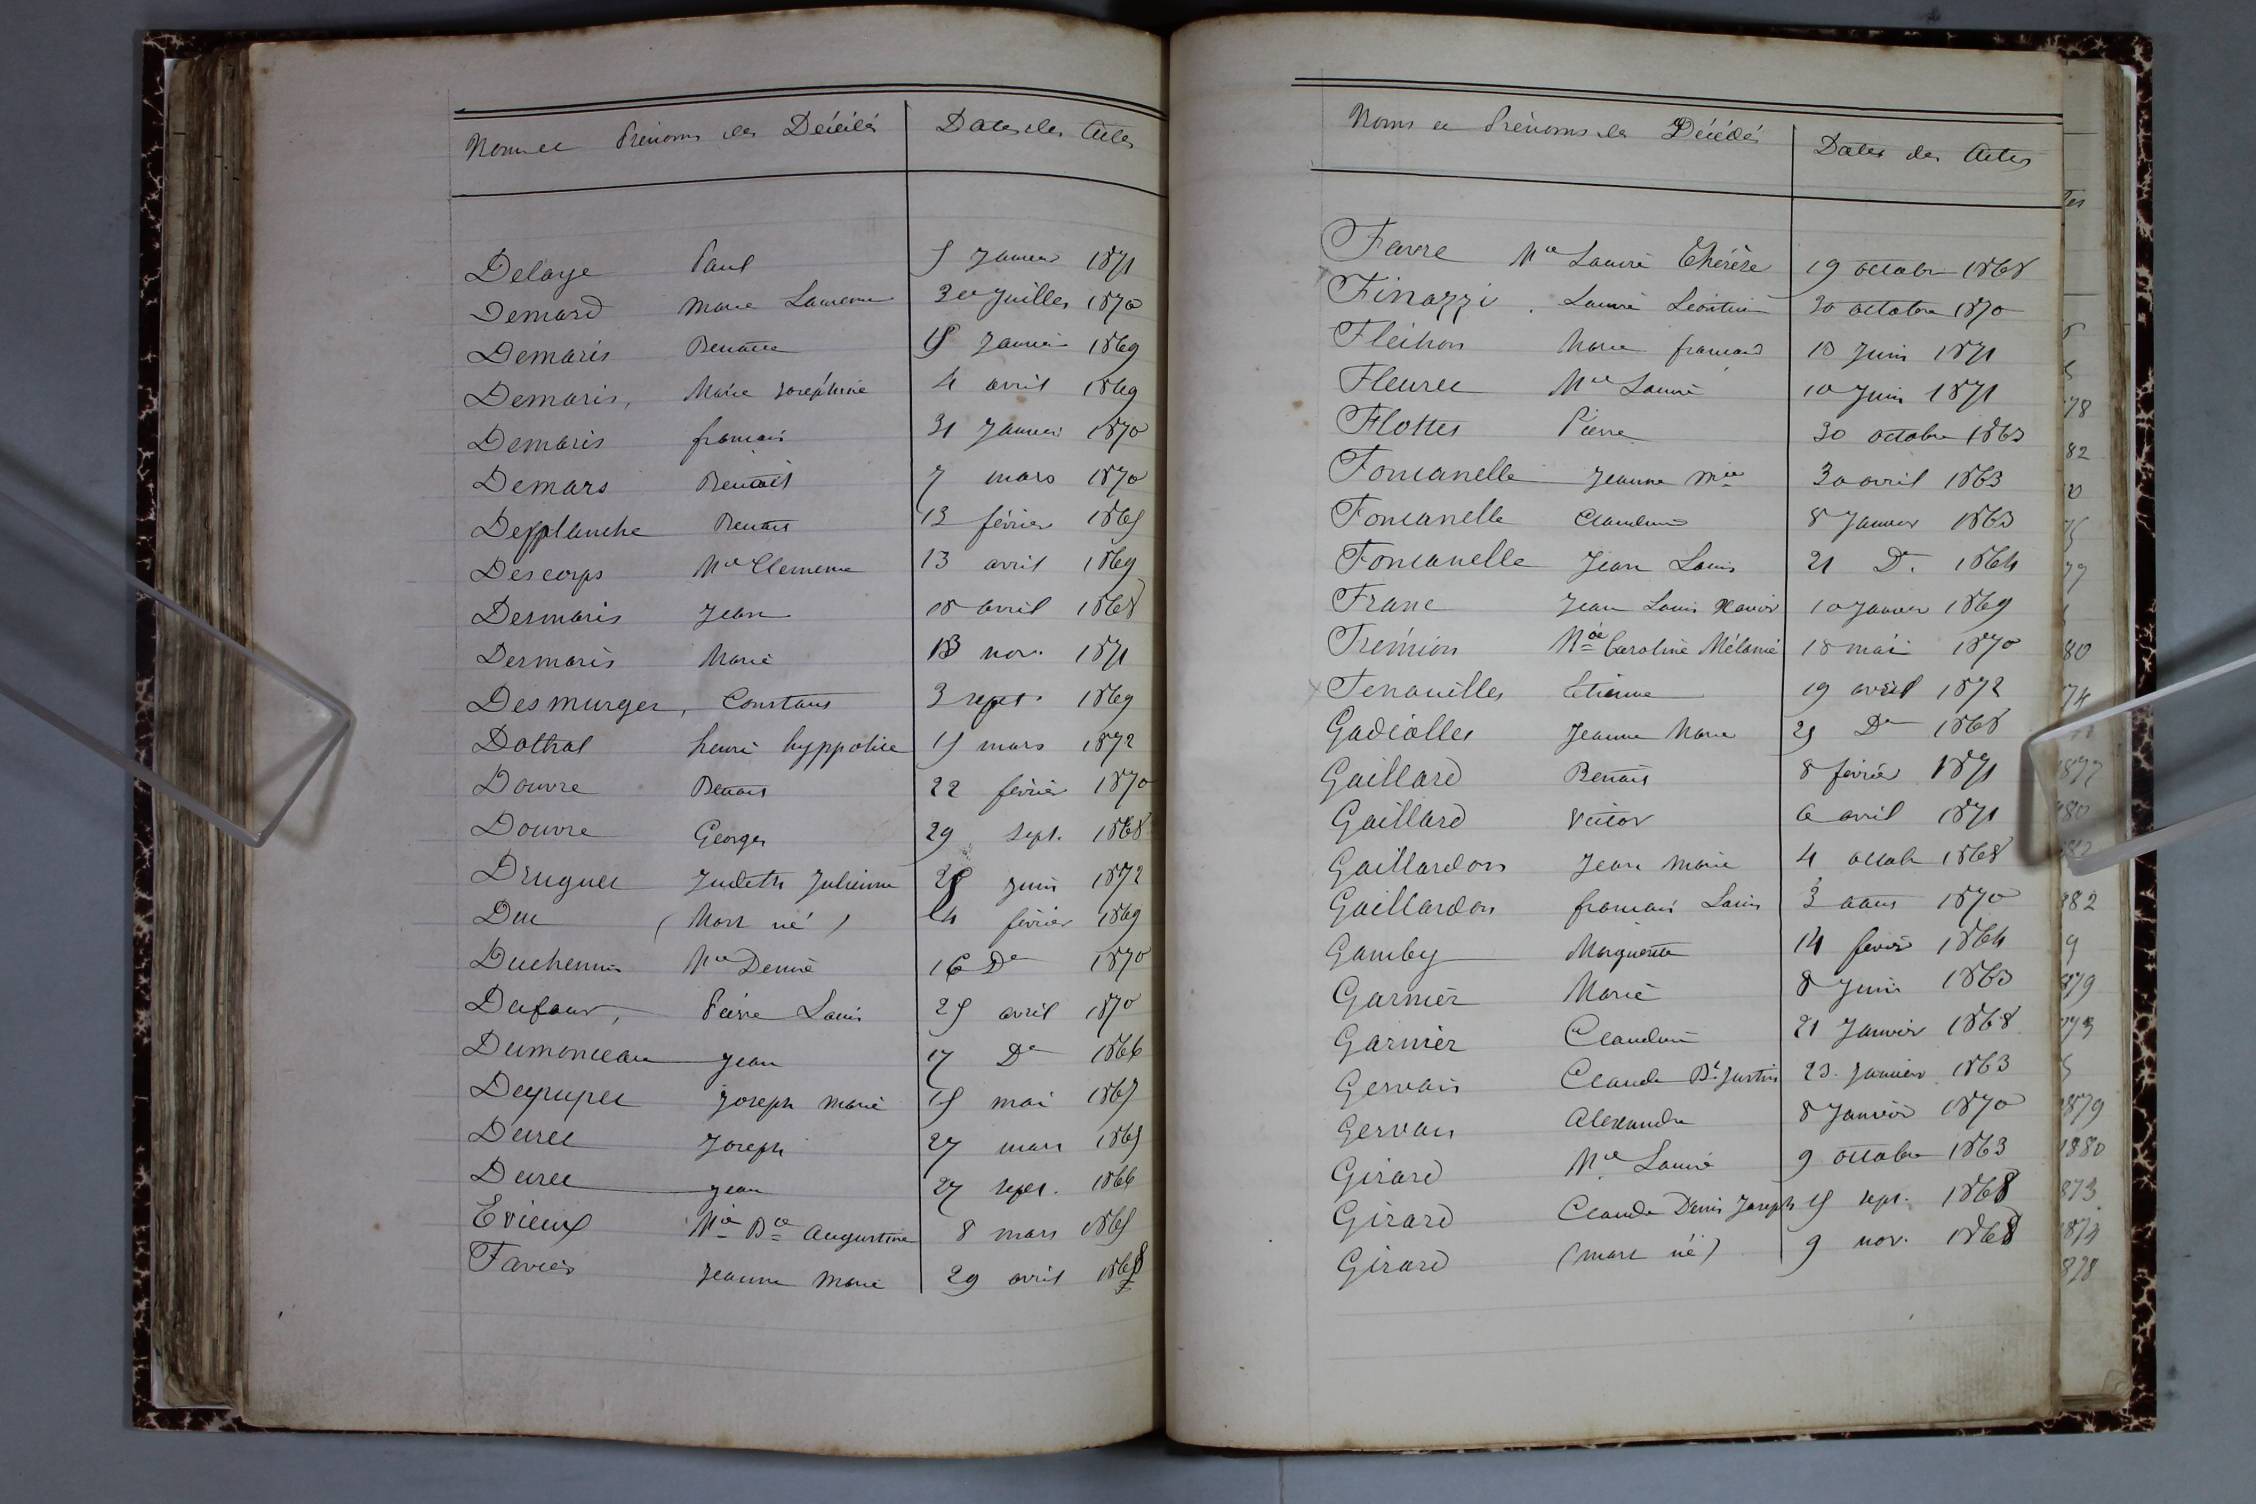 Noms et Prénoms des Décédés Dates des Actes
Delaye Paul 5 Janvier 1871
Demard Marie Laurence 30 Juillet 1870
Demaris Benoite 15 Janvier 1869
Demaris, Marie Joséphine 4 avril 1869
Demaris françois 31 Janvier 1870
Demars Benoit 7 mars 1870
Desplanche Benoit 13 février 1865
Descorps Mie Clémence 13 avril 1869
Desmaris Jean 18 avril 1868
Desmaris Marie 13 nov. 1871
Desmurger, Constant 3 sept. 1869
Dothal henri hyppolite 15 mars 1872
Douvre Benoit 22 février 1870
Douvre Georges 29 sept. 1868
Druguet Judith Julienne 28 Juin 1872
Duc (Mort né) 24 février 1869
Duchenne Mie Denise 16 De 1870
Dufour, Pierre Louis 25 avril 1870
Dumonceau Jean 17 De 1866
Dupupet Joseph Marie 15 mai 1867
Duret Joseph 27 mars 1865
Duret Jean 27 sept. 1866
Evieux Mie Bte Augustine 8 mars 1865
Favier Jeanne Marie 29 avril 1868
Noms et Prénoms des Décédés Dates des Actes
Favre Mie Louise Thérèse 19 octobre 1868
Finazzi. Louise Léontine 30 octobre 1870
Fléchon Marie françoise 18 Juin 1871
Fleuret Mie Louise 10 Juin 1871
Flottes Pierre 30 octobre 1863
Foncanelle Jeanne Mie 30 avril 1863
Foncanelle Claudine 8 Janvier 1863
Foncanelle Jean Louis 21 D. 1864
Franc Jean Louis Xavier 10 Janvier 1869
Frémion Mie Caroline Mélanie 18 mai 1870
Fenouillet Etienne 19 avril 1872
Gadiolles Jeanne Marie 25 De 1868
Gaillard Benoit 8 février 1871
Gaillard Victor 6 avril 1871
Gaillardon Jean Marie 4 octob 1868
Gaillardon françois Louis 3 aout 1870
Gamby Marguerite 14 février 1864
Garnier Marie 8 Juin 1863
Garnier Claudine 21 Janvier 1868
Gervais Claude Bt Justin 23. Janvier 1863
Gervais Alexandre 8 Janvier 1870
Girard Mie Louise 9 octobre 1863
Girard Claude Denis Joseph 15 sept. 1868
Girard (mort né) 9 nov. 1868